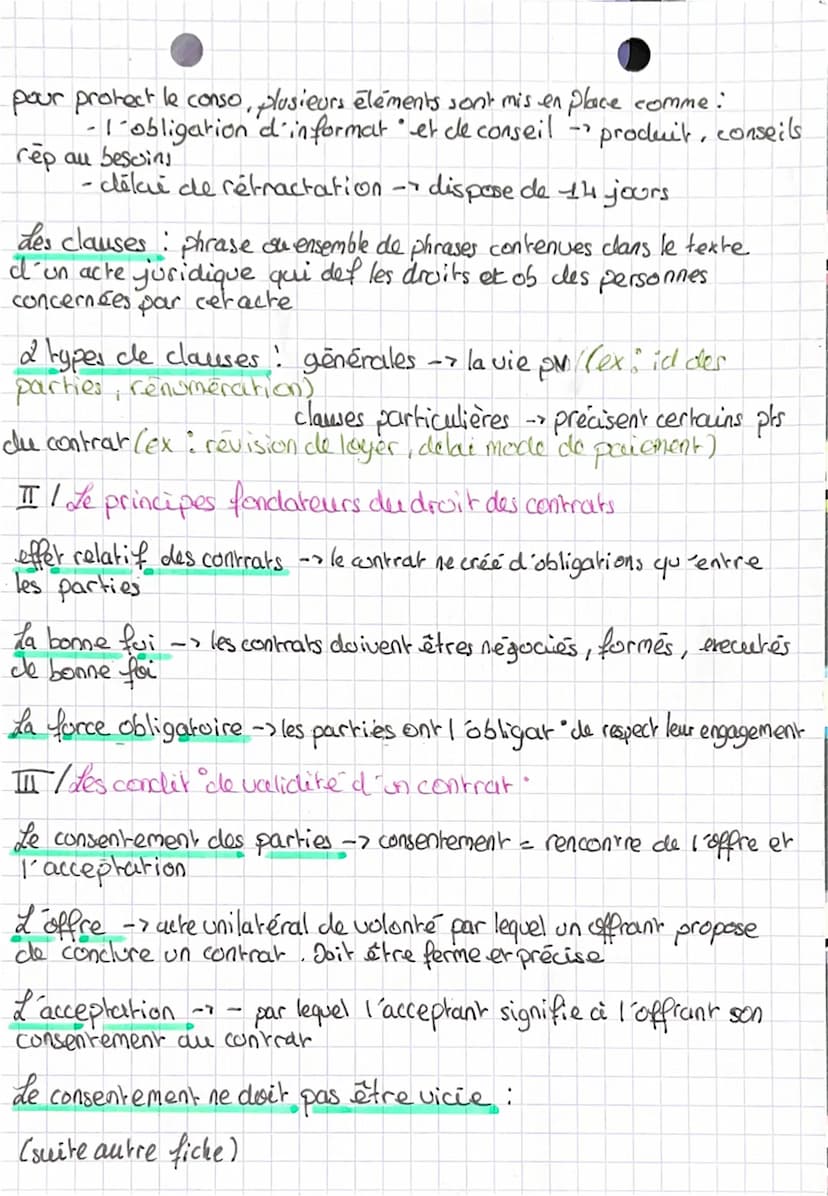 pour protect le conso, plusieurs éléments sont mis en place comme :
- l'obligation d'informat° et de conseil -> produit, conseils
rép au besoins
- délai de rétractation -> dispose de 14 jours
Les clauses : phrase ou ensemble de phrases contenues dans le texte
d'un acte juridique qui def les droits et ob des personnes
concernées par cet acte
2 types de clauses : générales -> la vie pv (ex : id des
parties, rénumération)
clauses particulières -> précisent certains pts
du contrat (ex : révision de loyer, délai mode de paiement)
II / Le principes fondateurs du droit des contrats
effet relatif des contrats -> le contrat ne créé d'obligations qu'entre
les parties
La bonne foi -> les contrats doivent êtres négociés, formés, executés
de bonne foi
La force obligatoire -> les parties ont l'obligat° de respect leur engagement
III / Les condit° de validité d'un contrat.
Le consentement des parties -> consentement = rencontre de l'offre et
l'acceptation
L'offre -> acte unilatéral de volonté par lequel un offrant propose
de conclure un contrat. Doit être ferme et précise
L'acceptation -> - par lequel l'acceptant signifie à l'offrant son
consentement au contrat
Le consentement ne doit pas être vicié :
(suite autre fiche)